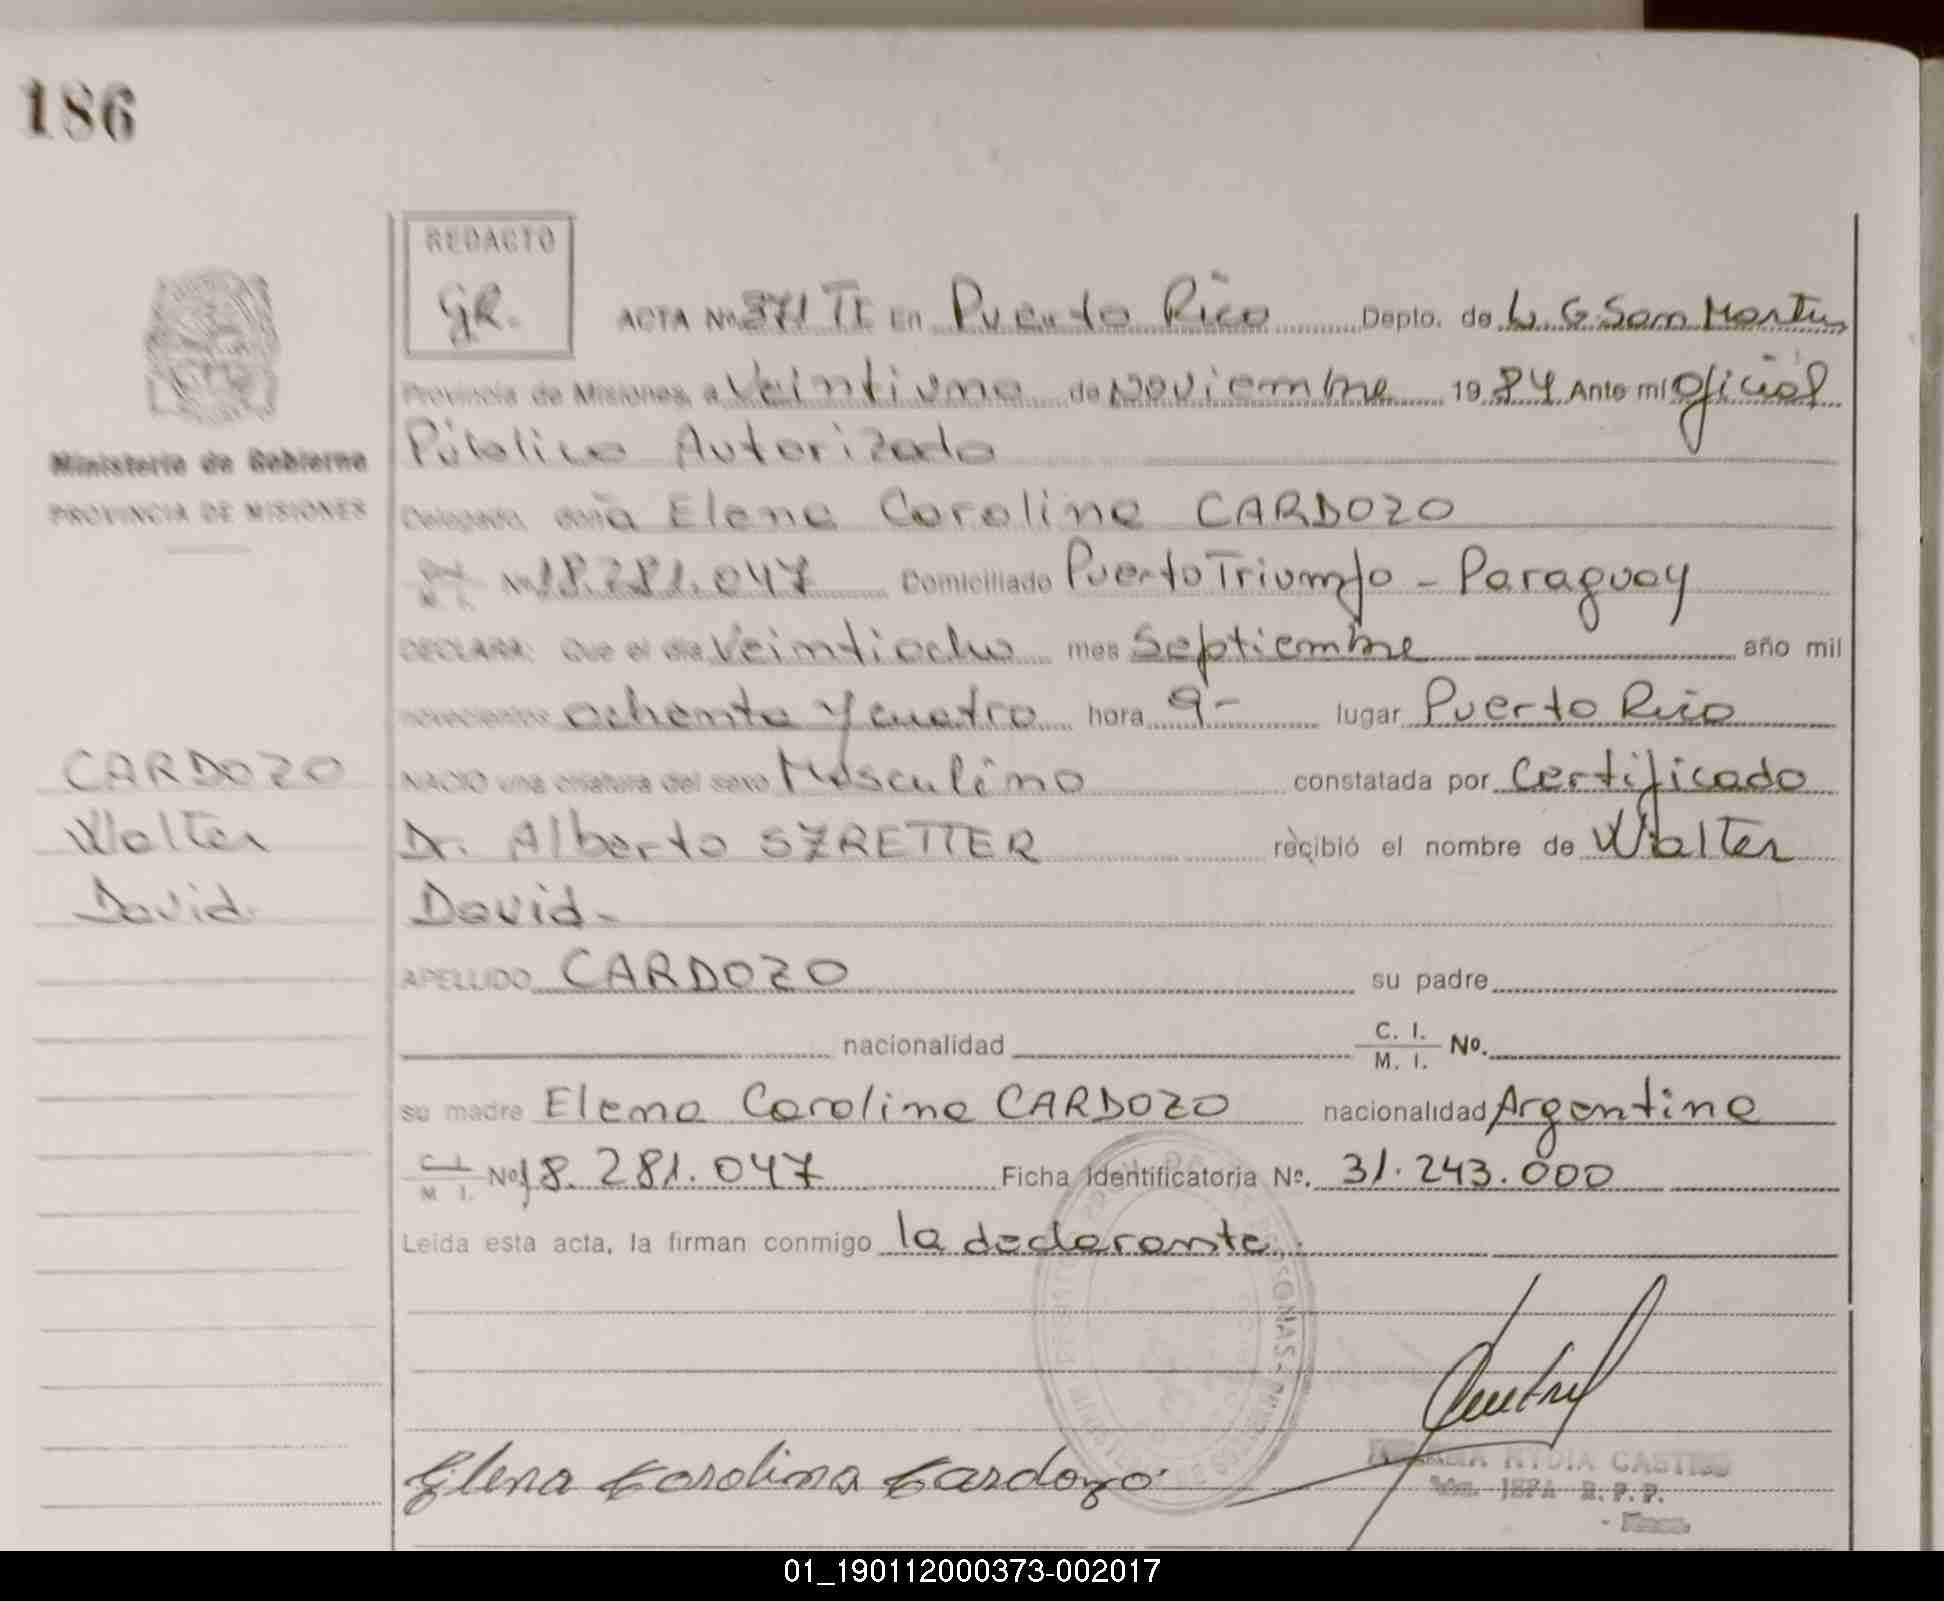 186
REDACTO
GR.
ACTA No. 371 TI En Puerto Rico Depto. de L. G. San Martin
Provincia de Misiones, a Veintiuno de Noviembre 1984 Ante mi Oficial
Público Autorizado
Ministerio de Gobierno
PROVINCIA DE MISIONES
Delegado, doña Elena Carolina CARDOZO
No 18.281.047 Domiciliado Puerto Triumfo - Paraguay
DECLARA: Que el día Veintiocho mes Septiembre año mil
novecientos ochenta y cuatro hora 9- lugar Puerto Rico
CARDOZO
Walter
David.
NACIO una criatura del sexo Masculino constatada por Certificado
Dr. Alberto SZRETTER recibió el nombre de Walter
David-
APELLIDO CARDOZO su padre
nacionalidad C. I. M. I. No.
su madre Elena Carolina CARDOZO nacionalidad Argentina
C. I. M. I. No 18.281.047 Ficha Identificatoria No. 31.243.000
Leida esta acta, la firman conmigo la declarante.
Elena Carolina Cardozo
NYDIA CASTRO
JEFA R.P.P.
01_190112000373-002017